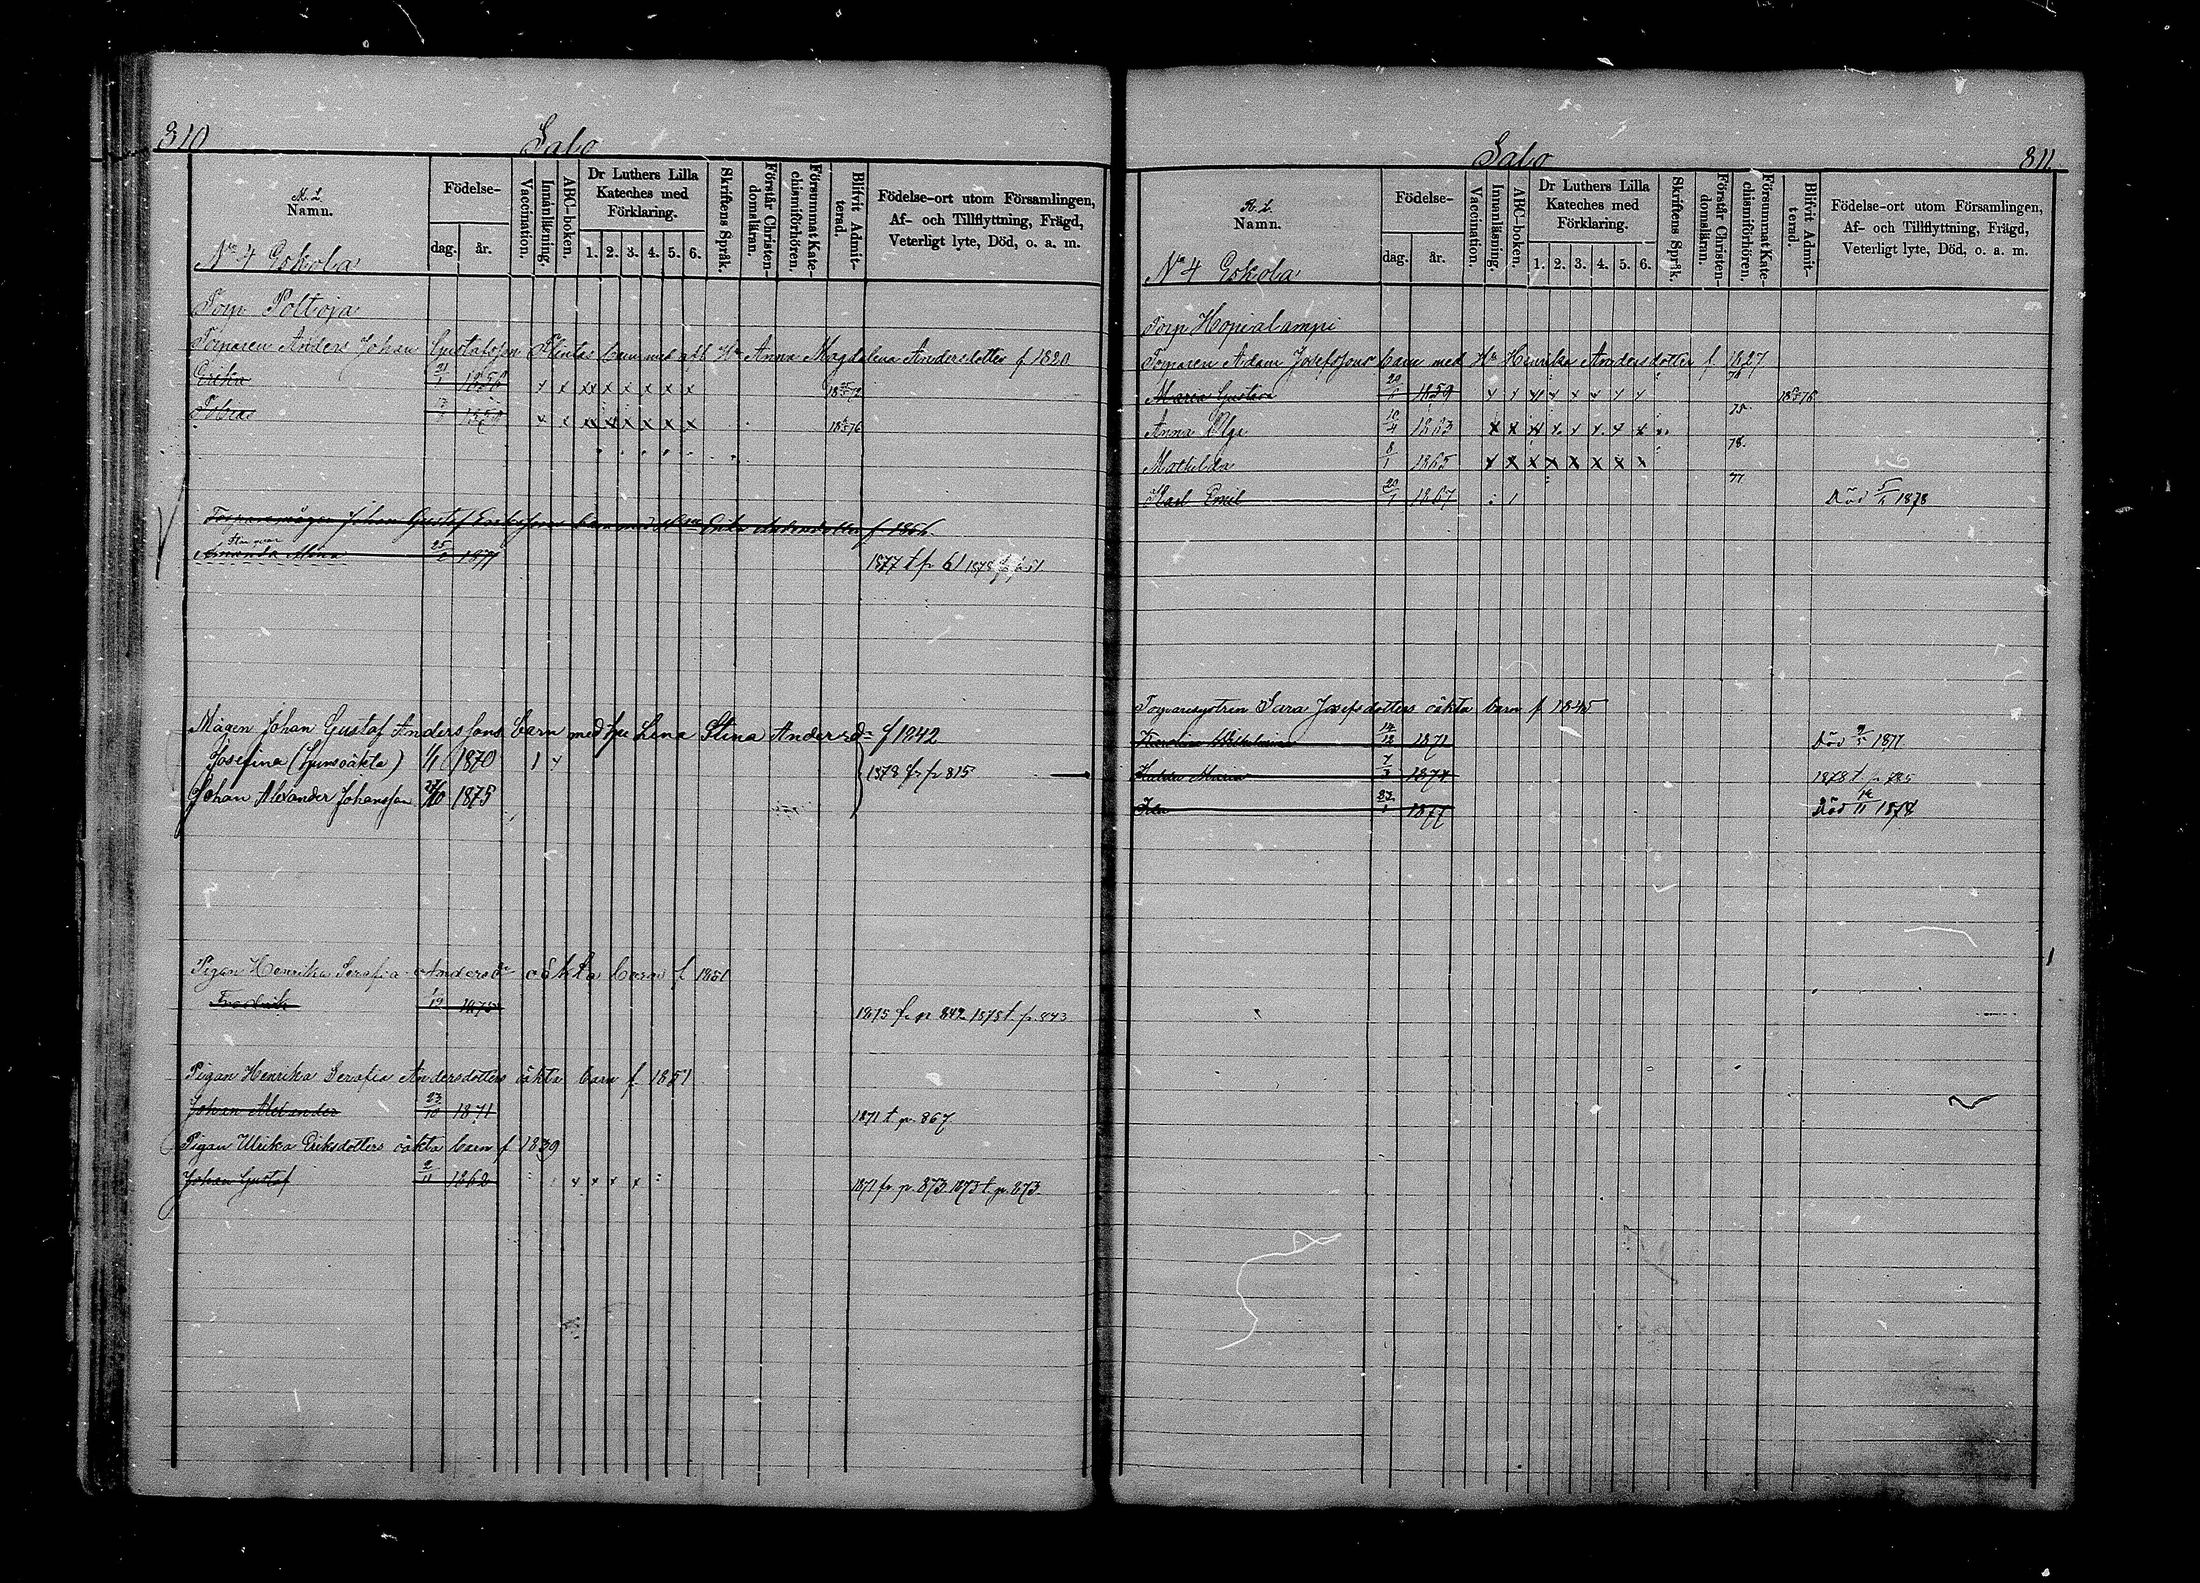 810
Salo
M. L.
Namn.
Födelse-
dag.
år.
Vaccination.
Innanläsning.
ABC-boken.
Dr Luthers Lilla
Kateches med
Förklaring.
1. 2. 3. 4. 5. 6.
Skriftens Språk.
Förstår Christen-
domsläran.
Försummat Kate-
chismiförhören.
Blifvit Admit-
terad.
Födelse-ort utom Församlingen,
Af- och Tillflyttning, Frägd,
Veterligt lyte, Död, o. a. m.
No 4 Eskola
Torp Poltoja
Torparen Anders Johan Gustafsson barn med Hu Anna Magdalena Andersdotter f 1820
Erika 21/1 1856 x x xx x x x x x
Tobias x x x x x x x
Torparemågen Johan Gustaf barn med f 1856
Amanda Alina 25 1877 1877 t p 61 1878
Mågen Johan Gustaf Anderssons barn med hu Lena Stina Andersdr f 1842
Josefina (hustruns oäkta) 1/1 1870 1878 fr p 815
Johan Alexander Johansson 27/10 1875
Pigan Henrika Serafia Andersdr oäkta barn f 1851
Fredrik 1875 1875 fr p 842 1878 t. p. 843
Pigan Henrika Serafia Andersdotters oäkta barn f 1851
Johan Alexander 23/10 1871 1871 t p. 867
Pigan Ulrika Eriksdotters oäkta barn f 1839
Johan Gustaf 2/11 1862 x x x x 1871 fr p. 873. 1873 t. p. 873.
811
Salo
R. L.
Namn.
Födelse-
dag.
år.
Vaccination.
Innanläsning.
ABC-boken.
Dr Luthers Lilla
Kateches med
Förklaring.
1. 2. 3. 4. 5. 6.
Skriftens Språk.
Förstår Christen-
domsläran.
Försummat Kate-
chismiförhören.
Blifvit Admit-
terad.
Födelse-ort utom Församlingen,
Af- och Tillflyttning, Frägd,
Veterligt lyte, Död, o. a. m.
No 4 Eskola
Torp Hopialampi
Torparen Adam Josefssons barn med Hu Henrika Andersdotter f. 1827
Maria Gustava 1859 x x x x x x x x 76
Anna Olga 10/4 1863 x x x x x x x x 75.
Mathilda 8/1 1865 x x x x x x x x 78.
Karl Emil 20/1 1867 77 Död 1878
Torparesystern Sara Josefsdotters oäkta barn f 1845
Karolina Wilhelmina 14/12 1871 Död 9/5 1877
Hulda Maria 1874 1878 t. p 785
Ida 23/1 1877 Död 1878